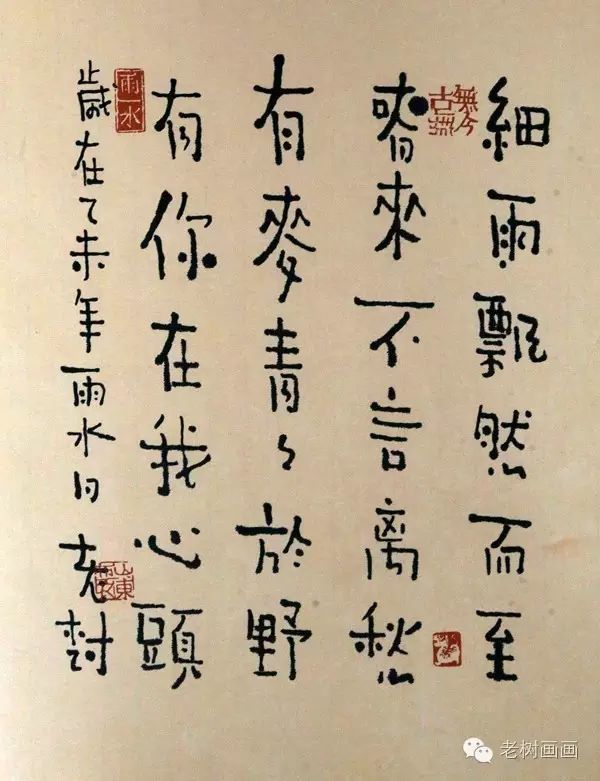 細雨飄然而至
春來不言離愁
有麥青々於野
有你在我心頭
雨水
歲在乙未年雨水日 老樹
老树画画